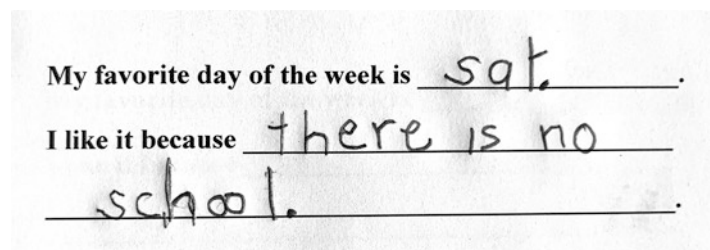 My favorite day of the week is sat. .
I like it because there is no
school. .